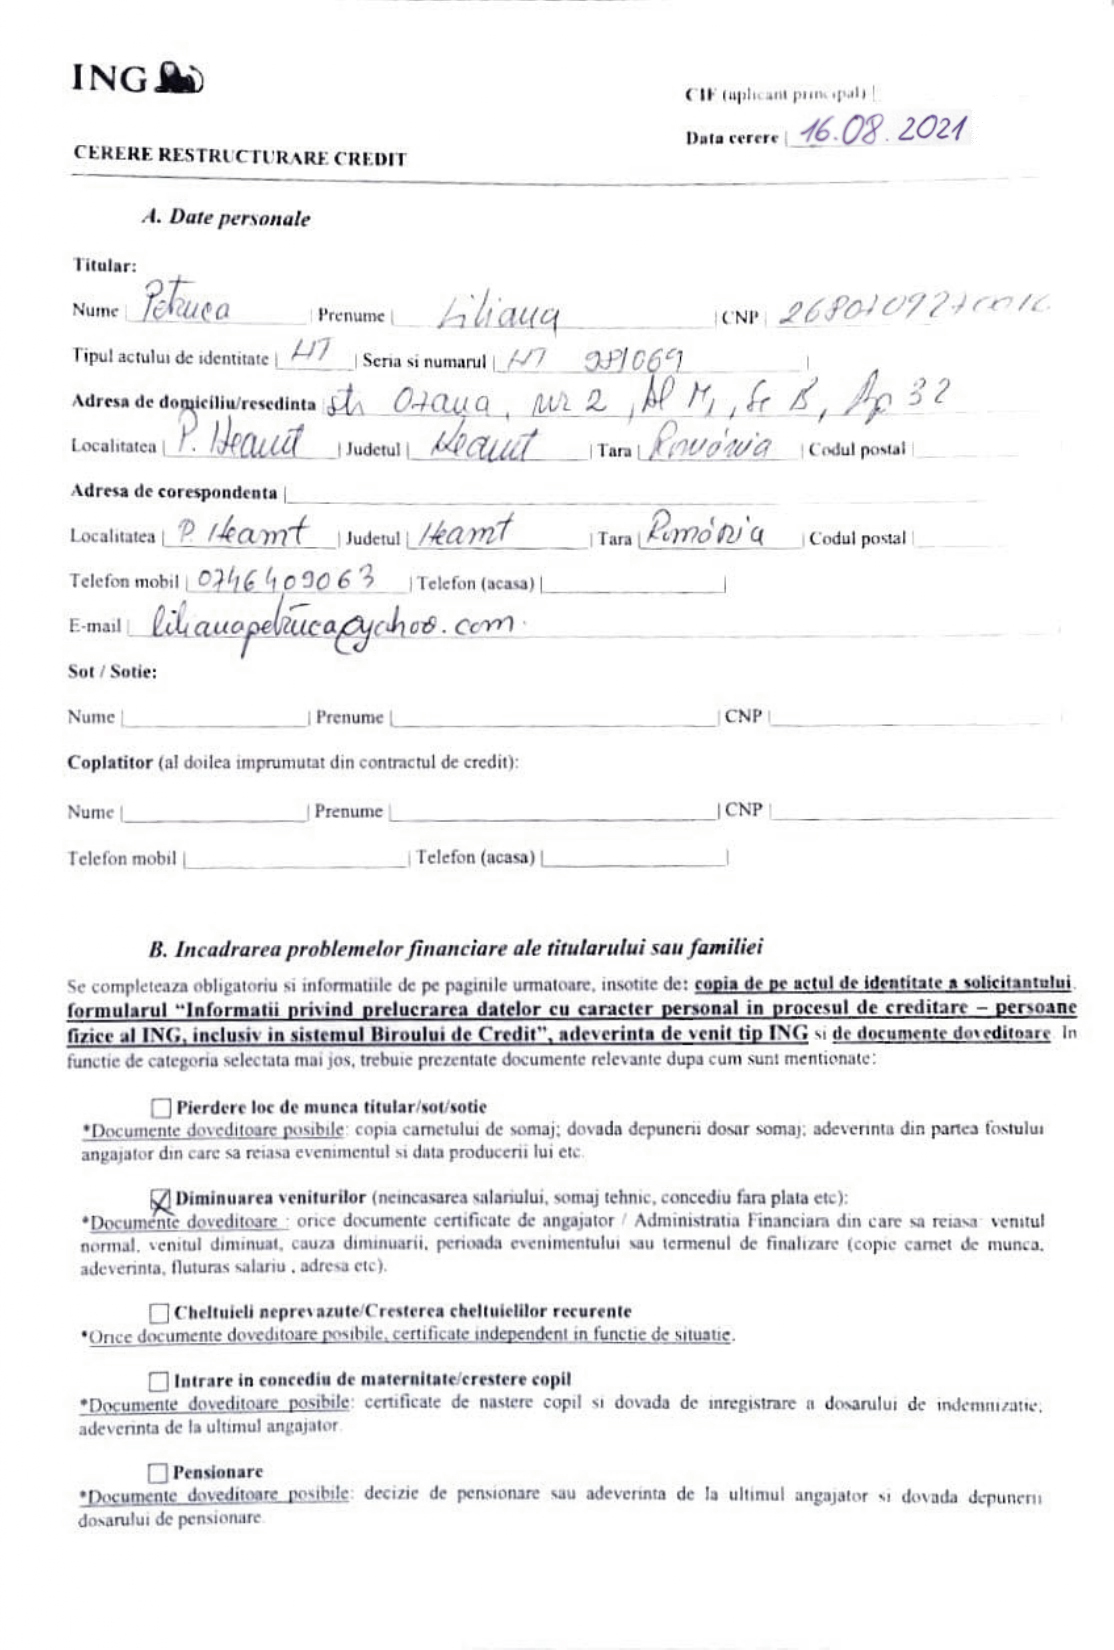 ING
CIF (aplicant principal) |
Data cerere | 16.08.2021
CERERE RESTRUCTURARE CREDIT
A. Date personale
Titular:
Nume | Petruca | Prenume | Liliana | CNP |
Tipul actului de identitate | NT | Seria si numarul | NT 981069 |
Adresa de domiciliu/resedinta | str Ozana, nr 2, bl M1, Sc B, Ap 32
Localitatea | P. Neamt | Judetul | Neamt | Tara | România | Codul postal |
Adresa de corespondenta |
Localitatea | P. Neamt | Judetul | Neamt | Tara | România | Codul postal |
Telefon mobil | 0746409063 | Telefon (acasa) | |
E-mail | lilianapetruca@yahoo.com
Sot / Sotie:
Nume | | Prenume | | CNP |
Coplatitor (al doilea imprumutat din contractul de credit):
Nume | | Prenume | | CNP |
Telefon mobil | | Telefon (acasa) | |
B. Incadrarea problemelor financiare ale titularului sau familiei
Se completeaza obligatoriu si informatiile de pe paginile urmatoare, insotite de: copia de pe actul de identitate a solicitantului,
formularul “Informatii privind prelucrarea datelor cu caracter personal in procesul de creditare – persoane
fizice al ING, inclusiv in sistemul Biroului de Credit”, adeverinta de venit tip ING si de documente doveditoare. In
functie de categoria selectata mai jos, trebuie prezentate documente relevante dupa cum sunt mentionate:
Pierdere loc de munca titular/sot/sotie
*Documente doveditoare posibile: copia carnetului de somaj; dovada depunerii dosar somaj; adeverinta din partea fostului
angajator din care sa reiasa evenimentul si data producerii lui etc.
Diminuarea veniturilor (neincasarea salariului, somaj tehnic, concediu fara plata etc):
*Documente doveditoare : orice documente certificate de angajator / Administratia Financiara din care sa reiasa: venitul
normal, venitul diminuat, cauza diminuarii, perioada evenimentului sau termenul de finalizare (copie carnet de munca,
adeverinta, fluturas salariu , adresa etc).
Cheltuieli neprevazute/Cresterea cheltuielilor recurente
*Orice documente doveditoare posibile, certificate independent in functie de situatie.
Intrare in concediu de maternitate/crestere copil
*Documente doveditoare posibile: certificate de nastere copil si dovada de inregistrare a dosarului de indemnizatie;
adeverinta de la ultimul angajator.
Pensionare
*Documente doveditoare posibile: decizie de pensionare sau adeverinta de la ultimul angajator si dovada depunerii
dosarului de pensionare.